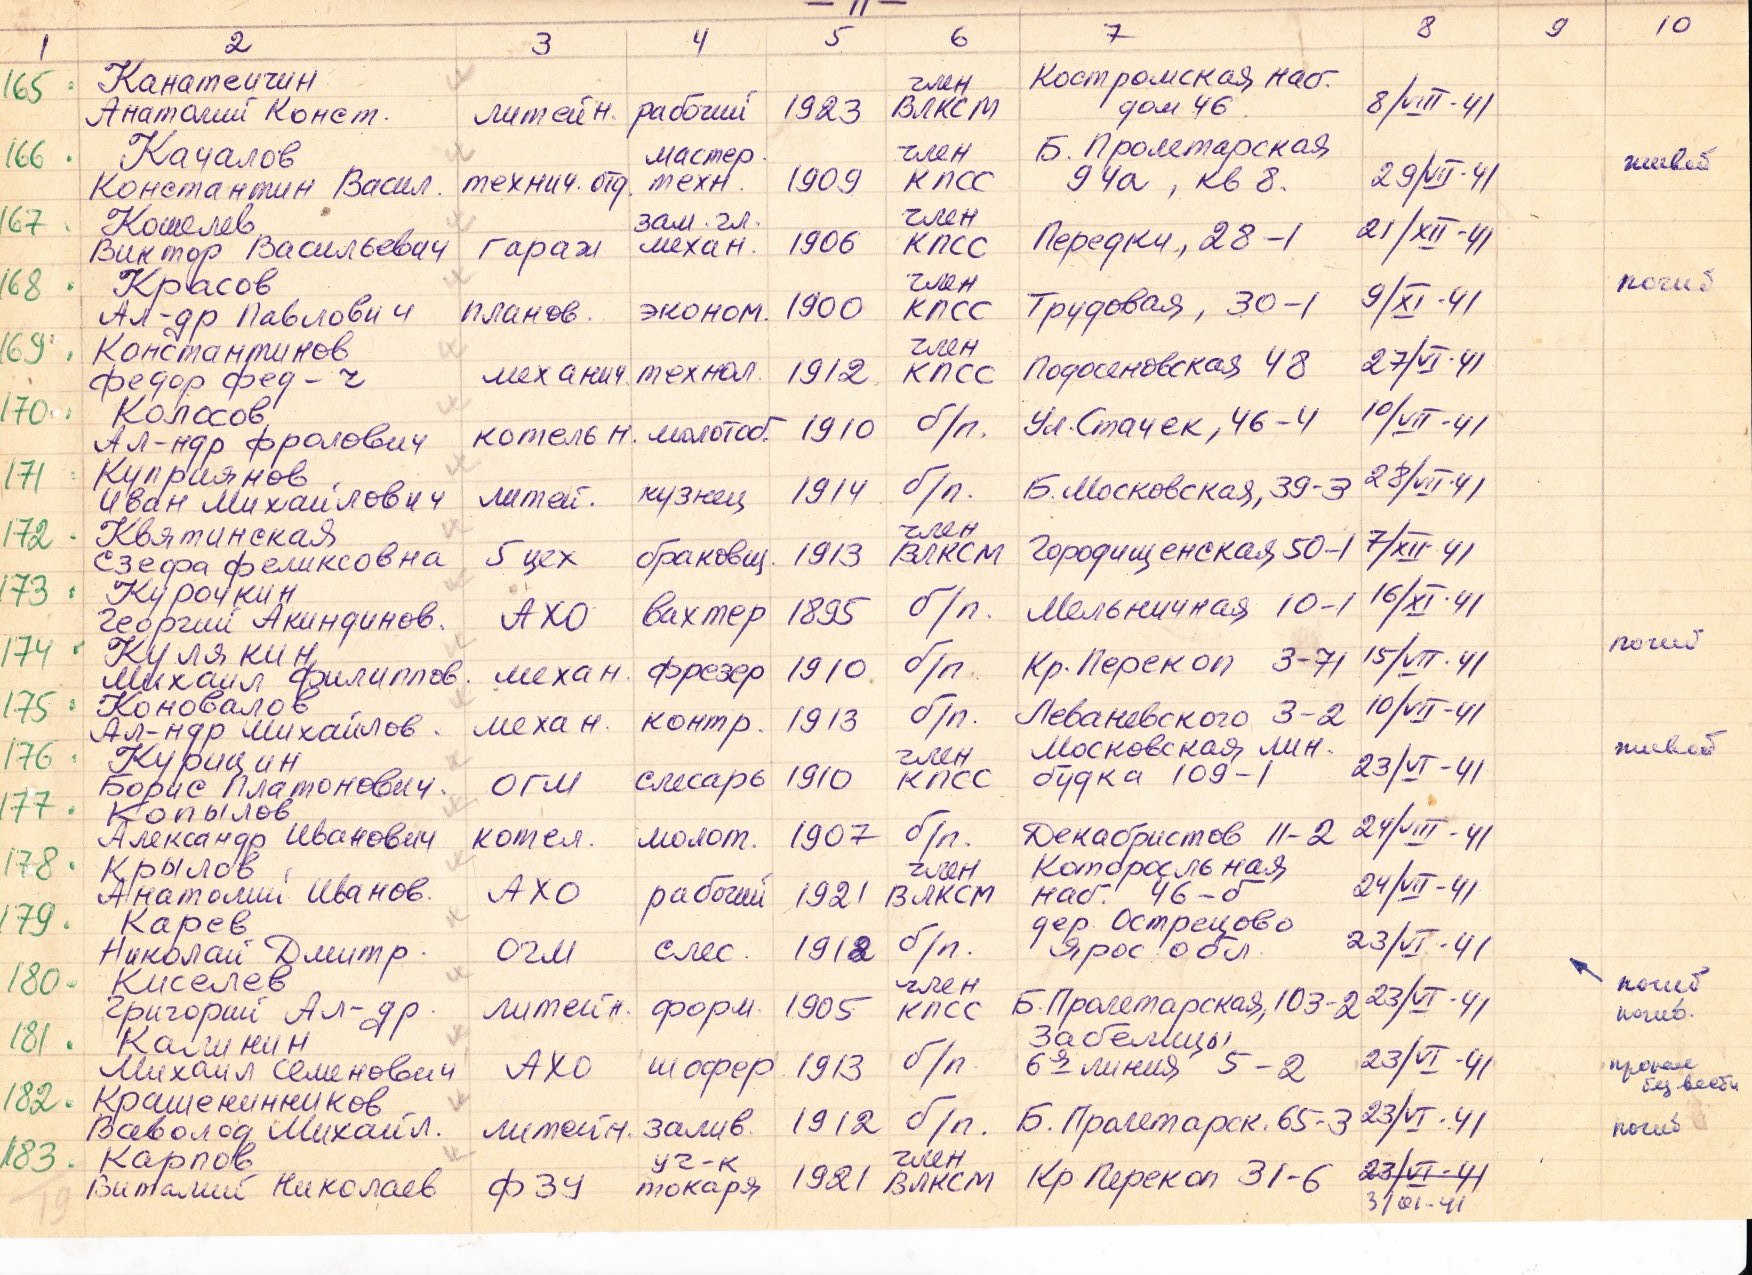 — 11 —
1 2 3 4 5 6 7 8 9 10
165. Канатейчин член Костромская наб.
Анатолий Конст. литейн. рабочий 1923 ВЛКСМ дом 46 8/VIII-41
166. Качалов мастер. член Б. Пролетарская живой
Константин Васил. технич. отд. техн. 1909 КПСС 94а, кв 8. 29/VII-41
167. Кошелев зам. гл. член
Виктор Васильевич гараж механ. 1906 КПСС Передки, 28-1 21/XII-41
168. Красов член погиб
Ал-др Павлович планов. эконом. 1900 КПСС Трудовая, 30-1 9/XI-41
169. Константинов член
Федор Фед-ч механич. технол. 1912 КПСС Подосеновская 48 27/VI-41
170. Колосов
Ал-ндр Фролович котельн. молотоб. 1910 б/п. Ул. Стачек, 46-4 10/VII-41
171 Куприянов
Иван Михайлович литей. кузнец 1914 б/п. Б. Московская, 39-3 28/VII-41
172. Квятинская член
Езефа Феликсовна 5 цех браковщ. 1913 ВЛКСМ Городищенская, 50-1 7/XII-41
173. Курочкин
Георгий Акиндинов. АХО вахтер 1895 б/п. Мельничная 10-1 16/XI-41
174. Кулякин погиб
Михаил Филиппов. механ. фрезер 1910 б/п. Кр. Перекоп 3-71 15/VII-41
175. Коновалов
Ал-ндр Михайлов. механ. контр. 1913 б/п. Леваневского 3-2 10/VII-41
176. Курицин член Московская, лин. живой
Борис Платонович. ОГМ слесарь 1910 КПСС будка 109-1 23/VI-41
177. Копылов
Александр Иванович котел. молот. 1907 б/п. Декабристов 11-2 24/VIII-41
178. Крылов член Которосльная
Анатолий Иванов. АХО рабочий 1921 ВЛКСМ наб. 46-б 24/VII-41
179. Карев дер. Острецово
Николай Дмитр. ОГМ слес. 1912 б/п. Яросл. обл. 23/VI-41
180. Киселев член погиб
Григорий Ал-др. литейн. форм. 1905 КПСС Б. Пролетарская, 103-2 23/VI-41 погиб.
181. Калинин Забелицы
Михаил Семенович АХО шофер 1913 б/п 6я линия 5-2 23/VI-41 пропал без вести
182. Крашенинников
Вsволод Михайл. литейн. залив. 1912 б/п. Б. Пролетарск. 65-3 23/VI-41 погиб
183. Карпов уч-к член
Виталий Николаев ФЗУ токаря 1921 ВЛКСМ Кр Перекоп 31-6 23/VI-41
19